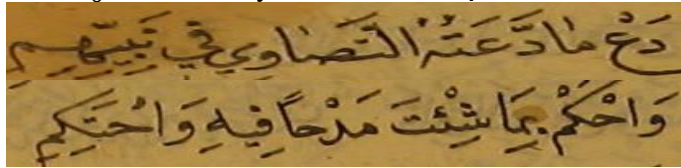 دَعْ مَا دَّعَتْهُ النَّصَاوِي فِي نَبِيِّهِمِ
وَاحْكُمْ بِمَا شِئْتَ مَدْحًا فِيهِ وَاحْتَكِمِ